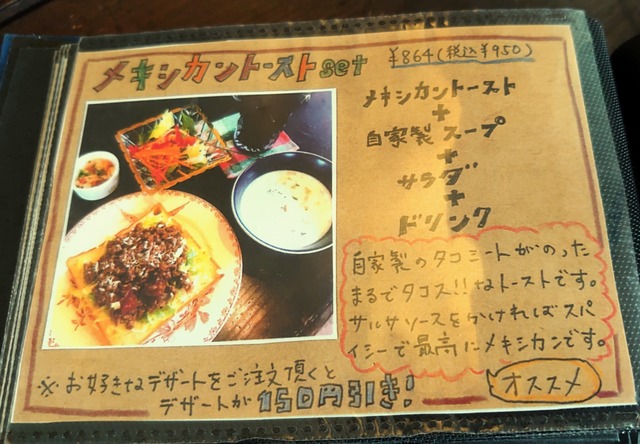 メキシカントーストset ¥864(税込¥950)
メキシカントースト
+
自家製スープ
+
サラダ
+
ドリンク
自家製のタコミートがのった
まるでタコス!!なトーストです。
サルサソースをかければスパ
イシーで最高にメキシカンです。
オススメ
※お好きなデザートをご注文頂くと
デザートが150円引き!